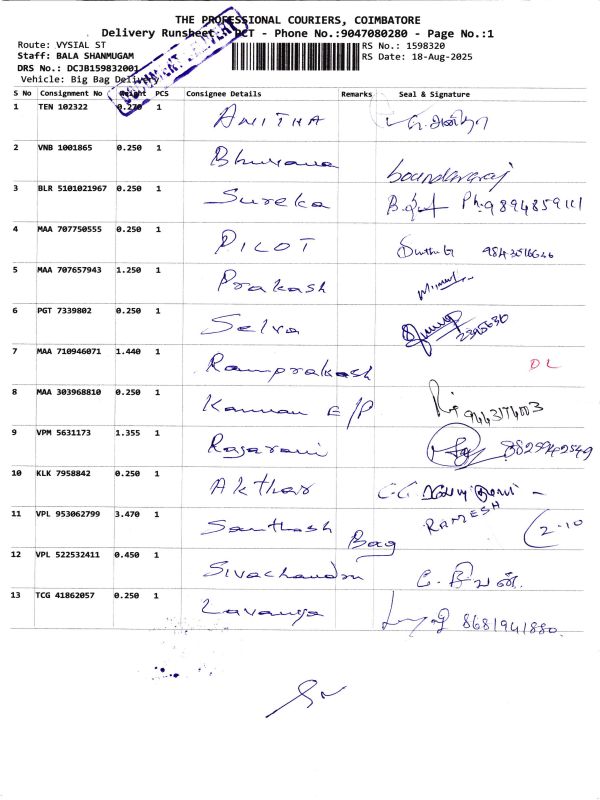 THE PROFESSIONAL COURIERS, COIMBATORE
Delivery Runsheet - PCT - Phone No.:9047080280 - Page No.:1
Route: VYSIAL ST
Staff: BALA SHANMUGAM
DRS No.: DCJB159832001
Vehicle: Big Bag Delivery
RS No.: 1598320
RS Date: 18-Aug-2025
S No Consignment No Weight PCS Consignee Details Remarks Seal & Signature
1 TEN 102322 0.270 1 ANITHA
2 VNB 1001865 0.250 1 Bhuvana boundararaj
3 BLR 5101021967 0.250 1 Sureka Ph:9894859111
4 MAA 707750555 0.250 1 PILOT
5 MAA 707657943 1.250 1 Prakash
6 PGT 7339802 0.250 1 Selva 2395630
7 MAA 710946071 1.440 1 Ramprakash DL
8 MAA 303968810 0.250 1 Kannan E/P
9 VPM 5631173 1.355 1 Rajarani
10 KLK 7958842 0.250 1 Akthar
11 VPL 953062799 3.470 1 Santhosh Bag RAMESH 2-10
12 VPL 522532411 0.450 1 Sivachandru C. சிவன்.
13 TCG 41862057 0.250 1 Lavanya 8681941880